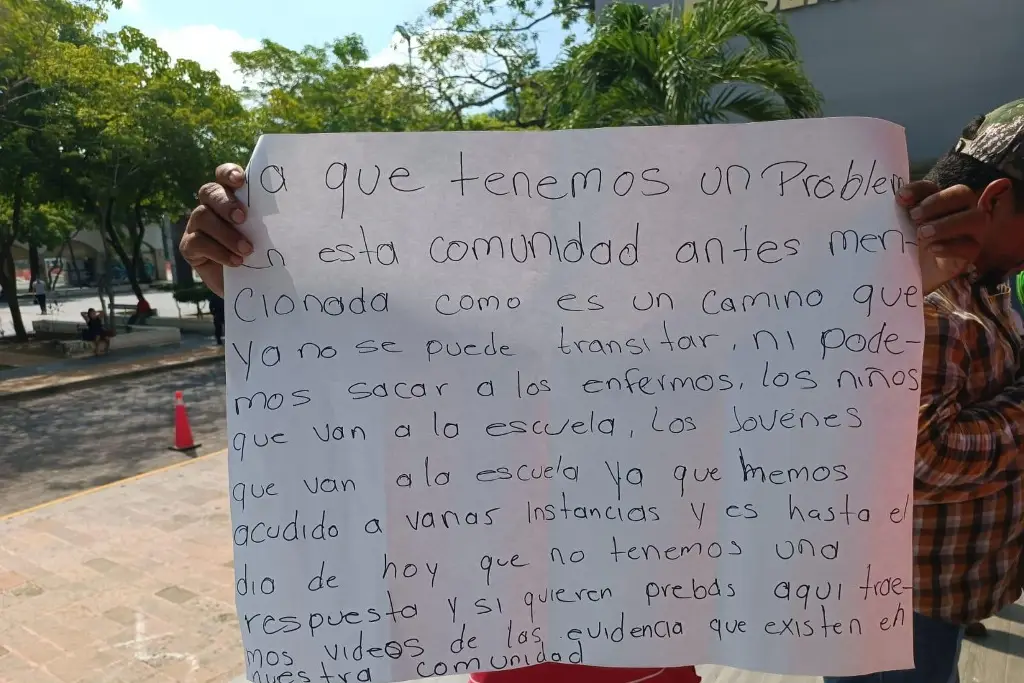 Ya que tenemos un Problem
en esta comunidad antes men-
cionada como es un camino que
ya no se puede transitar, ni pode-
mos sacar a los enfermos, los niños
que van a la escuela, los Jovénes
que van a la escuela ya que hemos
acudido a varias instancias y es hasta el
dia de hoy que no tenemos una
respuesta y si quieren prebas aqui trae-
mos videos de las evidencia que existen en
nuestra comunidad